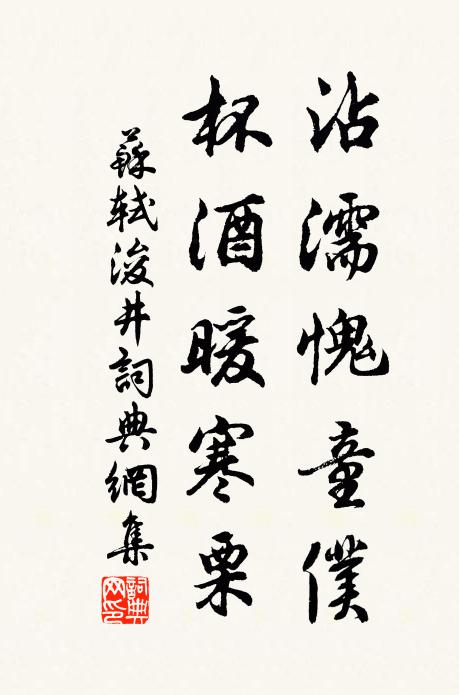 沾濡愧童僕
杯酒暖寒栗
蘇軾浚井詞典網集
詞典网印